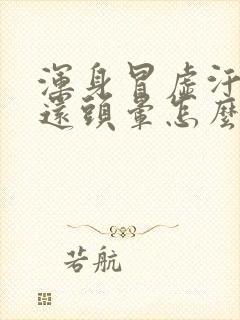 渾身冒虛汗
還頭暈怎麼
若航